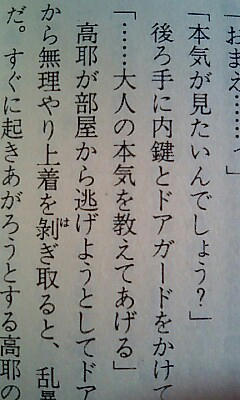 「おまえ……っ」
「本気が見たいんでしょう？」
後ろ手に内鍵とドアガードをかけて
「……大人の本気を教えてあげる」
高耶が部屋から逃げようとしてドア
から無理やり上着を剝ぎ取ると、乱暴
だ。すぐに起きあがろうとする高耶の